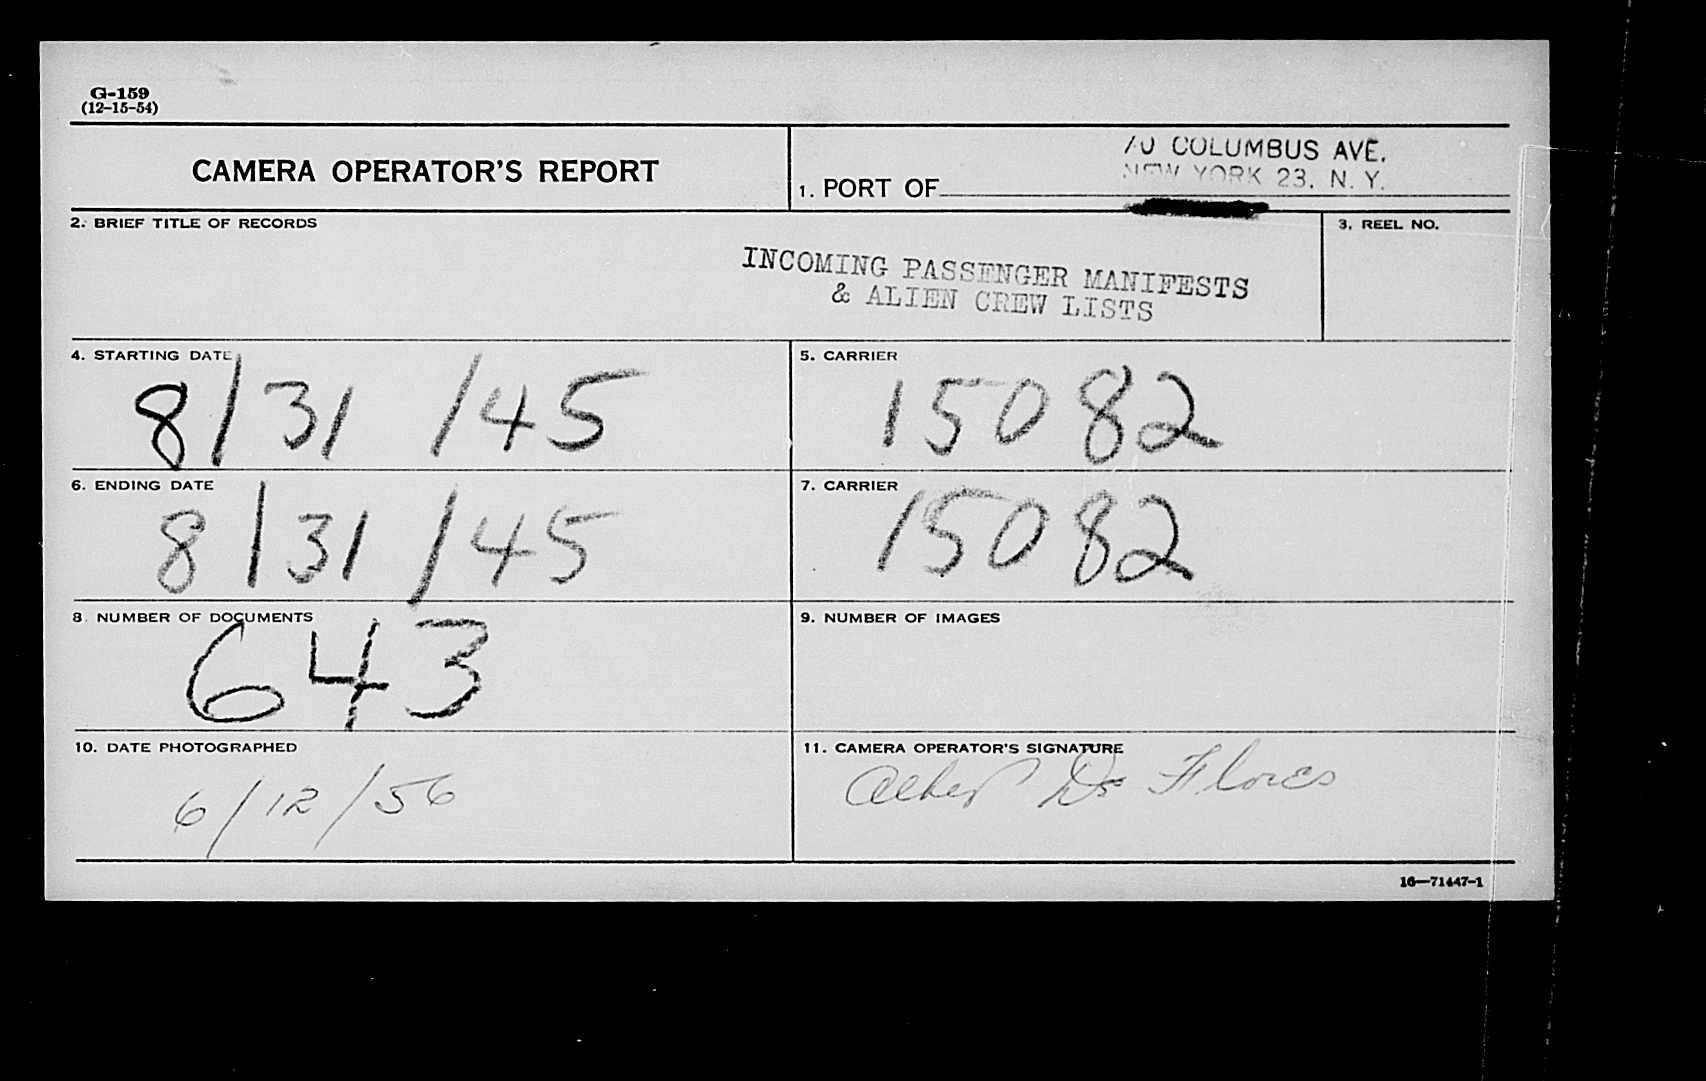 G-159
(12-15-54)
CAMERA OPERATOR'S REPORT
1. PORT OF
70 COLUMBUS AVE.
NEW YORK 23, N. Y.
2. BRIEF TITLE OF RECORDS
INCOMING PASSENGER MANIFESTS
& ALIEN CREW LISTS
3. REEL NO.
4. STARTING DATE
8/31/45
5. CARRIER
15082
6. ENDING DATE
8/31/45
7. CARRIER
15082
8. NUMBER OF DOCUMENTS
643
9. NUMBER OF IMAGES
10. DATE PHOTOGRAPHED
6/12/56
11. CAMERA OPERATOR'S SIGNATURE
Flores
16—71447-1